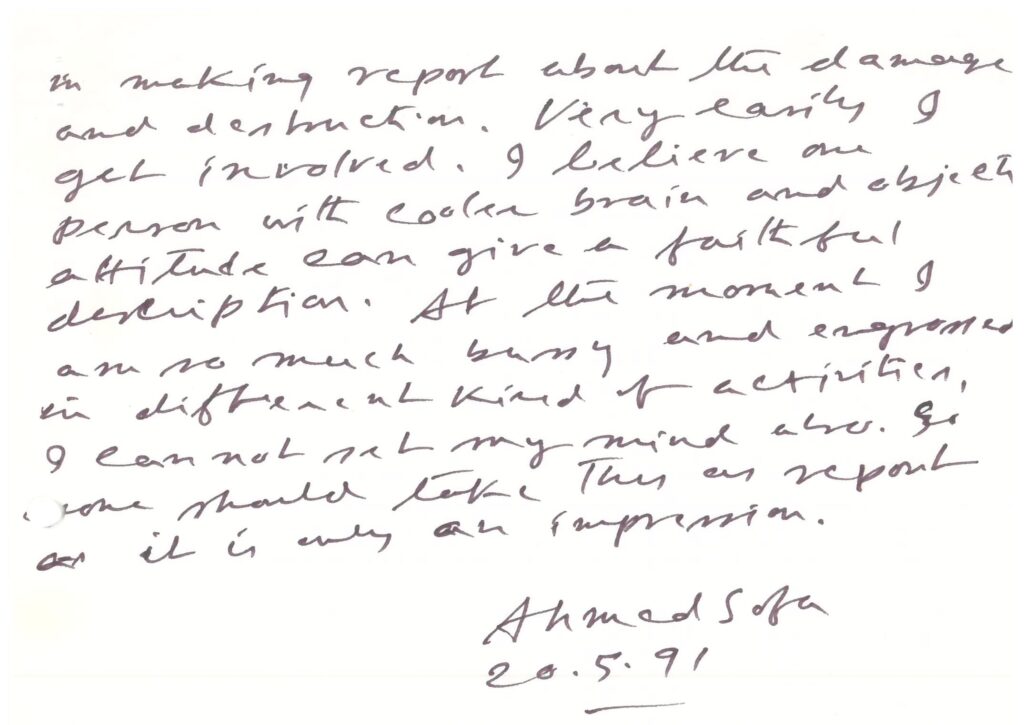 in making report about the damage
and destruction. Very easily I
get involved. I believe one
person with cooler brain and objecti
attitude can give a faithful
description. At the moment I
am so much bussy and engrossed
in different kind of activities,
I can not set my mind also. So
none should take This as report
as it is only an impression.
Ahmed Sofa
20.5.91